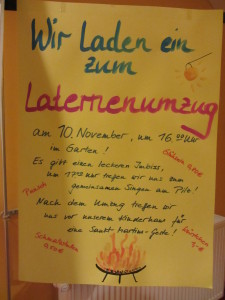 Wir Laden ein
zum
Laternenumzug
am 10. November, um 16.00 Uhr
im Garten!
Es gibt einen leckeren Imbiss,
um 17 Uhr treffen wir uns zum
Punsch
gemeinsamen Singen am Pilz!
Nach dem Umzug treffen wir
uns vor unserem Kinderhaus für
eine Sankt-Martins-Feier!
Schmalzbrote